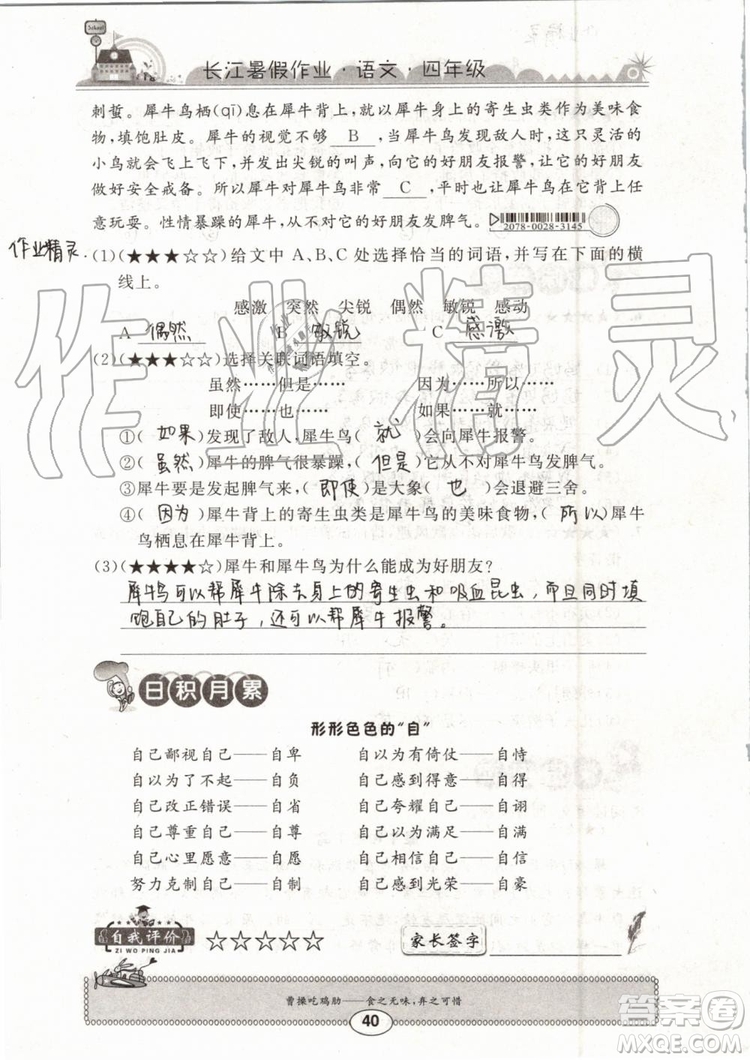 School
长江暑假作业·语文·四年级
刺蜇。犀牛鸟栖(qī)息在犀牛背上,以犀牛身上的寄生虫类作为美味食
物,填饱肚皮。犀牛的视觉不够 B ,当犀牛鸟发现敌人时,这只灵活的
小鸟就会飞上飞下,并发出尖锐的叫声,向它的好朋友报警,让它的好朋友
做好安全戒备。所以犀牛对犀牛鸟非常 C ,平时也让犀牛鸟在它背上任
意玩耍。性情暴躁的犀牛,从不对它的好朋友发脾气。 2078-0028-3145
作业精灵
(1)(★★★☆☆)给文中A、B、C处选择恰当的词语,并写在下面的横
线上。
感激 突然 尖锐 偶然 敏锐 感动
A 偶然 B 敏锐 C 感激
(2)(★★★☆☆)选择关联词语填空。
虽然……但是…… 因为……所以……
即使……也…… 如果……就……
①( 如果 )发现了敌人,犀牛鸟( 就 )会向犀牛报警。
②( 虽然 )犀牛的脾气很暴躁,( 但是 )它从不对犀牛鸟发脾气。
③犀牛要是发起脾气来,( 即使 )是大象( 也 )会退避三舍。
④( 因为 )犀牛背上的寄生虫类是犀牛鸟的美味食物,( 所以 )犀牛
鸟栖息在犀牛背上。
(3)(★★★★☆)犀牛和犀牛鸟为什么能成为好朋友?
犀牛鸟可以帮犀牛除去身上的寄生虫和吸血昆虫,而且同时填
饱自己的肚子,还可以帮犀牛报警。
作业精灵
日积月累
形形色色的“自”
自己鄙视自己——自卑 自以为有倚仗——自恃
自以为了不起——自负 自己感到得意——自得
自己改正错误——自省 自己夸耀自己——自诩
自己尊重自己——自尊 自己以为满足——自满
自己心里愿意——自愿 自己相信自己——自信
努力克制自己——自制 自己感到光荣——自豪
自我评价 ☆☆☆☆☆ 家长签字
ZI WO PING JIA
曹操吃鸡肋——食之无味,弃之可惜
40
答案圈
MXQE.COM